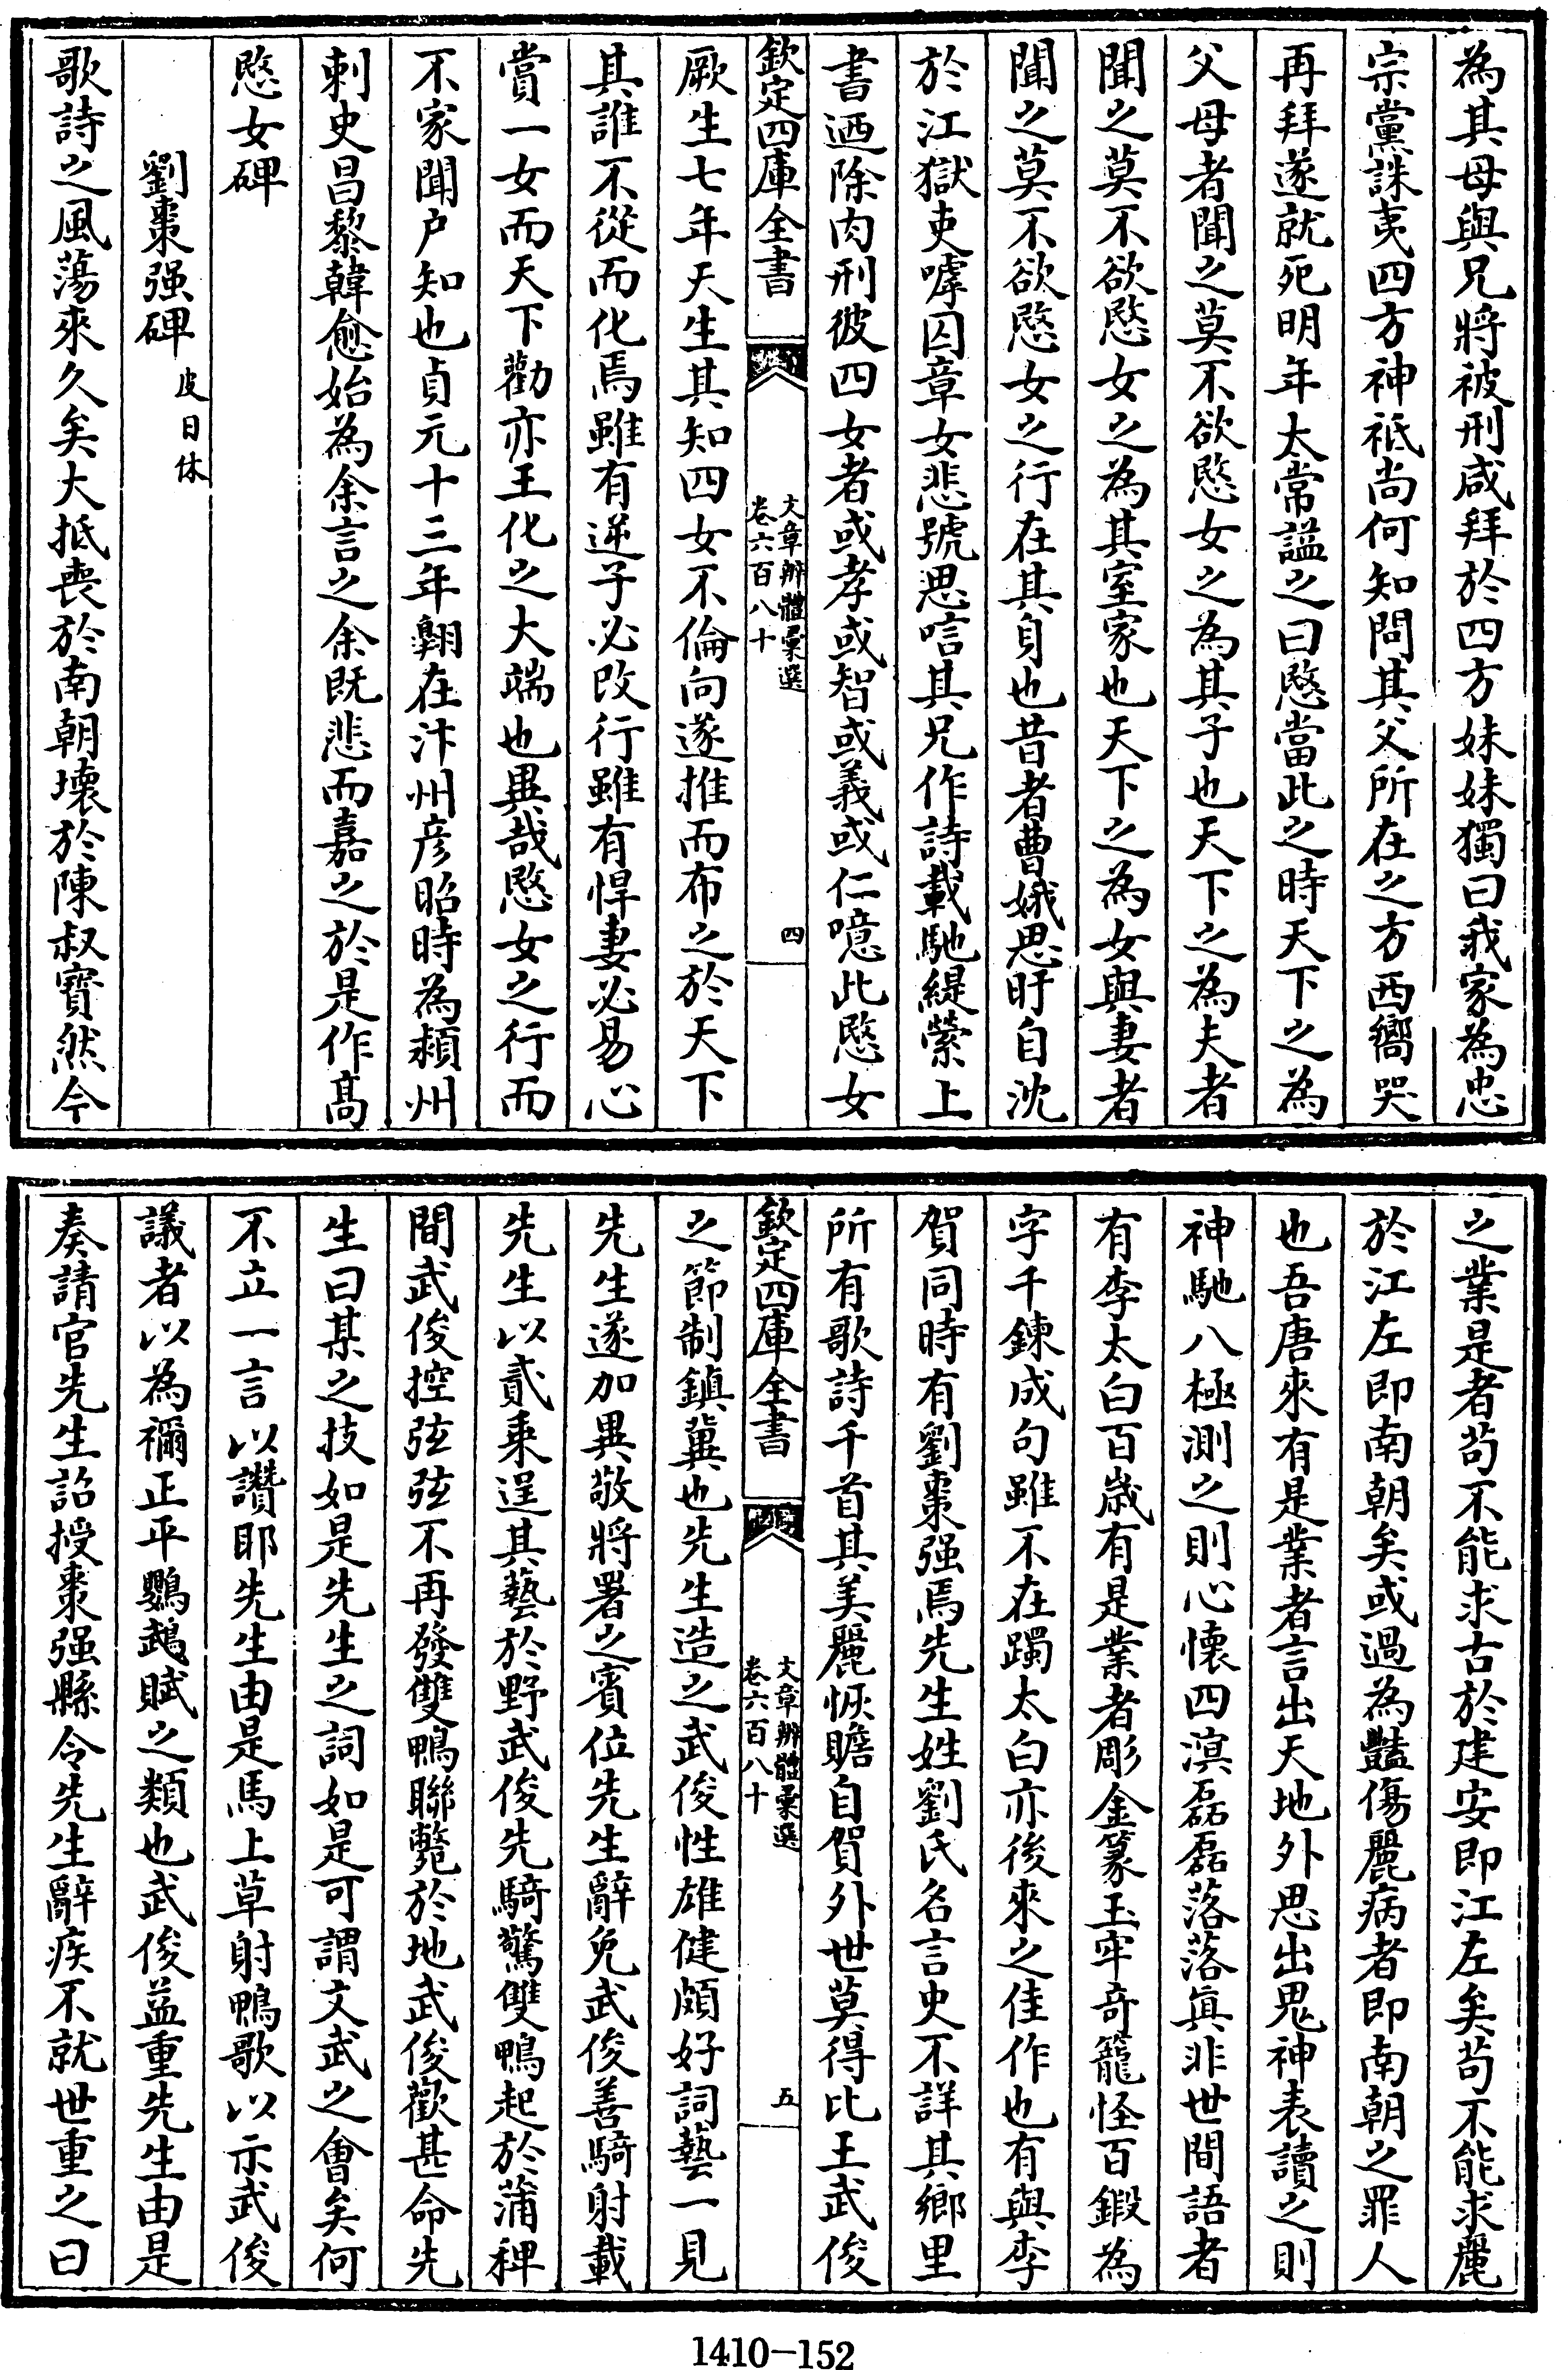 為其母與兄將被刑咸拜於四方妹妹獨曰我家為忠
宗黨誅夷四方神祗尚何知問其父所在之方西嚮哭
再拜遂就死明年太常謚之曰愍當此之時天下之為
父母者聞之莫不欲愍女之為其子也天下之為夫者
聞之莫不欲愍女之為其室家也天下之為女與妻者
聞之莫不欲愍女之行在其身也昔者曹娥思盱自沈
於江獄吏嘑囚章女悲號思唁其兄作詩載馳緹縈上
書迺除肉刑彼四女者或孝或智或義或仁噫此愍女
欽定四庫全書
文章辨體彙選
卷六百八十
四
厥生七年天生其知四女不倫向遂推而布之於天下
其誰不從而化焉雖有逆子必改行雖有悍妻必易心
賞一女而天下勸亦王化之大端也異哉愍女之行而
不家聞户知也貞元十三年翺在汴州彦昭時為潁州
刺史昌黎韓愈始為余言之余既悲而嘉之於是作髙
愍女碑
劉棗强碑 皮日休
歌詩之風蕩來久矣大抵喪於南朝壞於陳叔寳然今
之業是者苟不能求古於建安即江左矣苟不能求麗
於江左即南朝矣或過為豔傷麗病者即南朝之罪人
也吾唐來有是業者言出天地外思出鬼神表讀之則
神馳八極測之則心懷四溟磊磊落落真非世間語者
有李太白百歲有是業者彫金篆玉牢奇籠怪百鍛為
字千鍊成句雖不在躅太白亦後來之佳作也有與李
賀同時有劉棗强焉先生姓劉氏名言史不詳其鄉里
所有歌詩千首其美麗恢贍自賀外世莫得比王武俊
欽定四庫全書
文章辨體彙選
卷六百八十
五
之節制鎮冀也先生造之武俊性雄健頗好詞藝一見
先生遂加異敬將署之賓位先生辭免武俊善騎射載
先生以貳乗逞其藝於野武俊先騎驚雙鴨起於蒲稗
間武俊控弦弦不再發雙鴨聯斃於地武俊歡甚命先
生曰某之技如是先生之詞如是可謂文武之㑹矣何
不立一言以讚耶先生由是馬上草射鴨歌以示武俊
議者以為禰正平鸚鵡賦之類也武俊益重先生由是
奏請官先生詔授棗强縣令先生辭疾不就世重之曰
1410-152